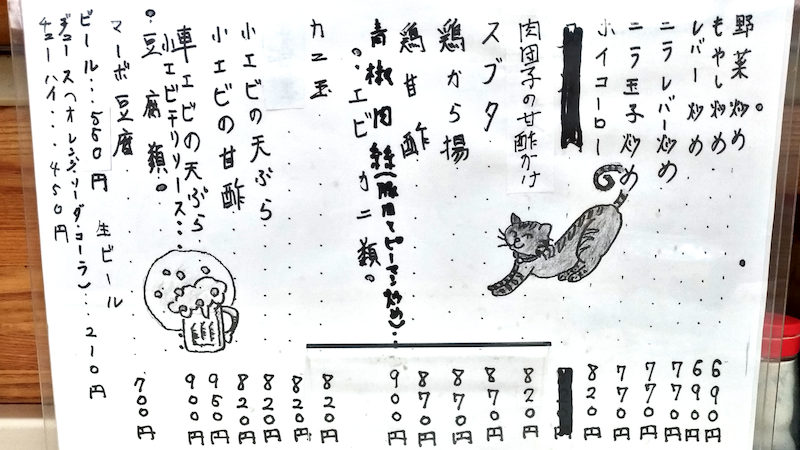 野菜炒め 690円
もやし炒め 690円
レバー炒め 770円
ニラレバー炒め 770円
ニラ玉子炒め 770円
ホイコーロー 820円
肉団子の甘酢かけ 820円
スブタ 870円
鶏から揚 870円
鶏甘酢 870円
青椒肉絲(豚肉とピーマン炒め)… 900円
。エビカニ類。
カニ玉 820円
820円
小エビの天ぷら 820円
小エビの甘酢 820円
車エビの天ぷら 950円
小エビチリソース… 900円
。豆腐類。
マーボ豆腐 700円
ビール…550円 生ビール
ジュース(オレンジ、ソーダ、コーラ)…210円
チューハイ…450円